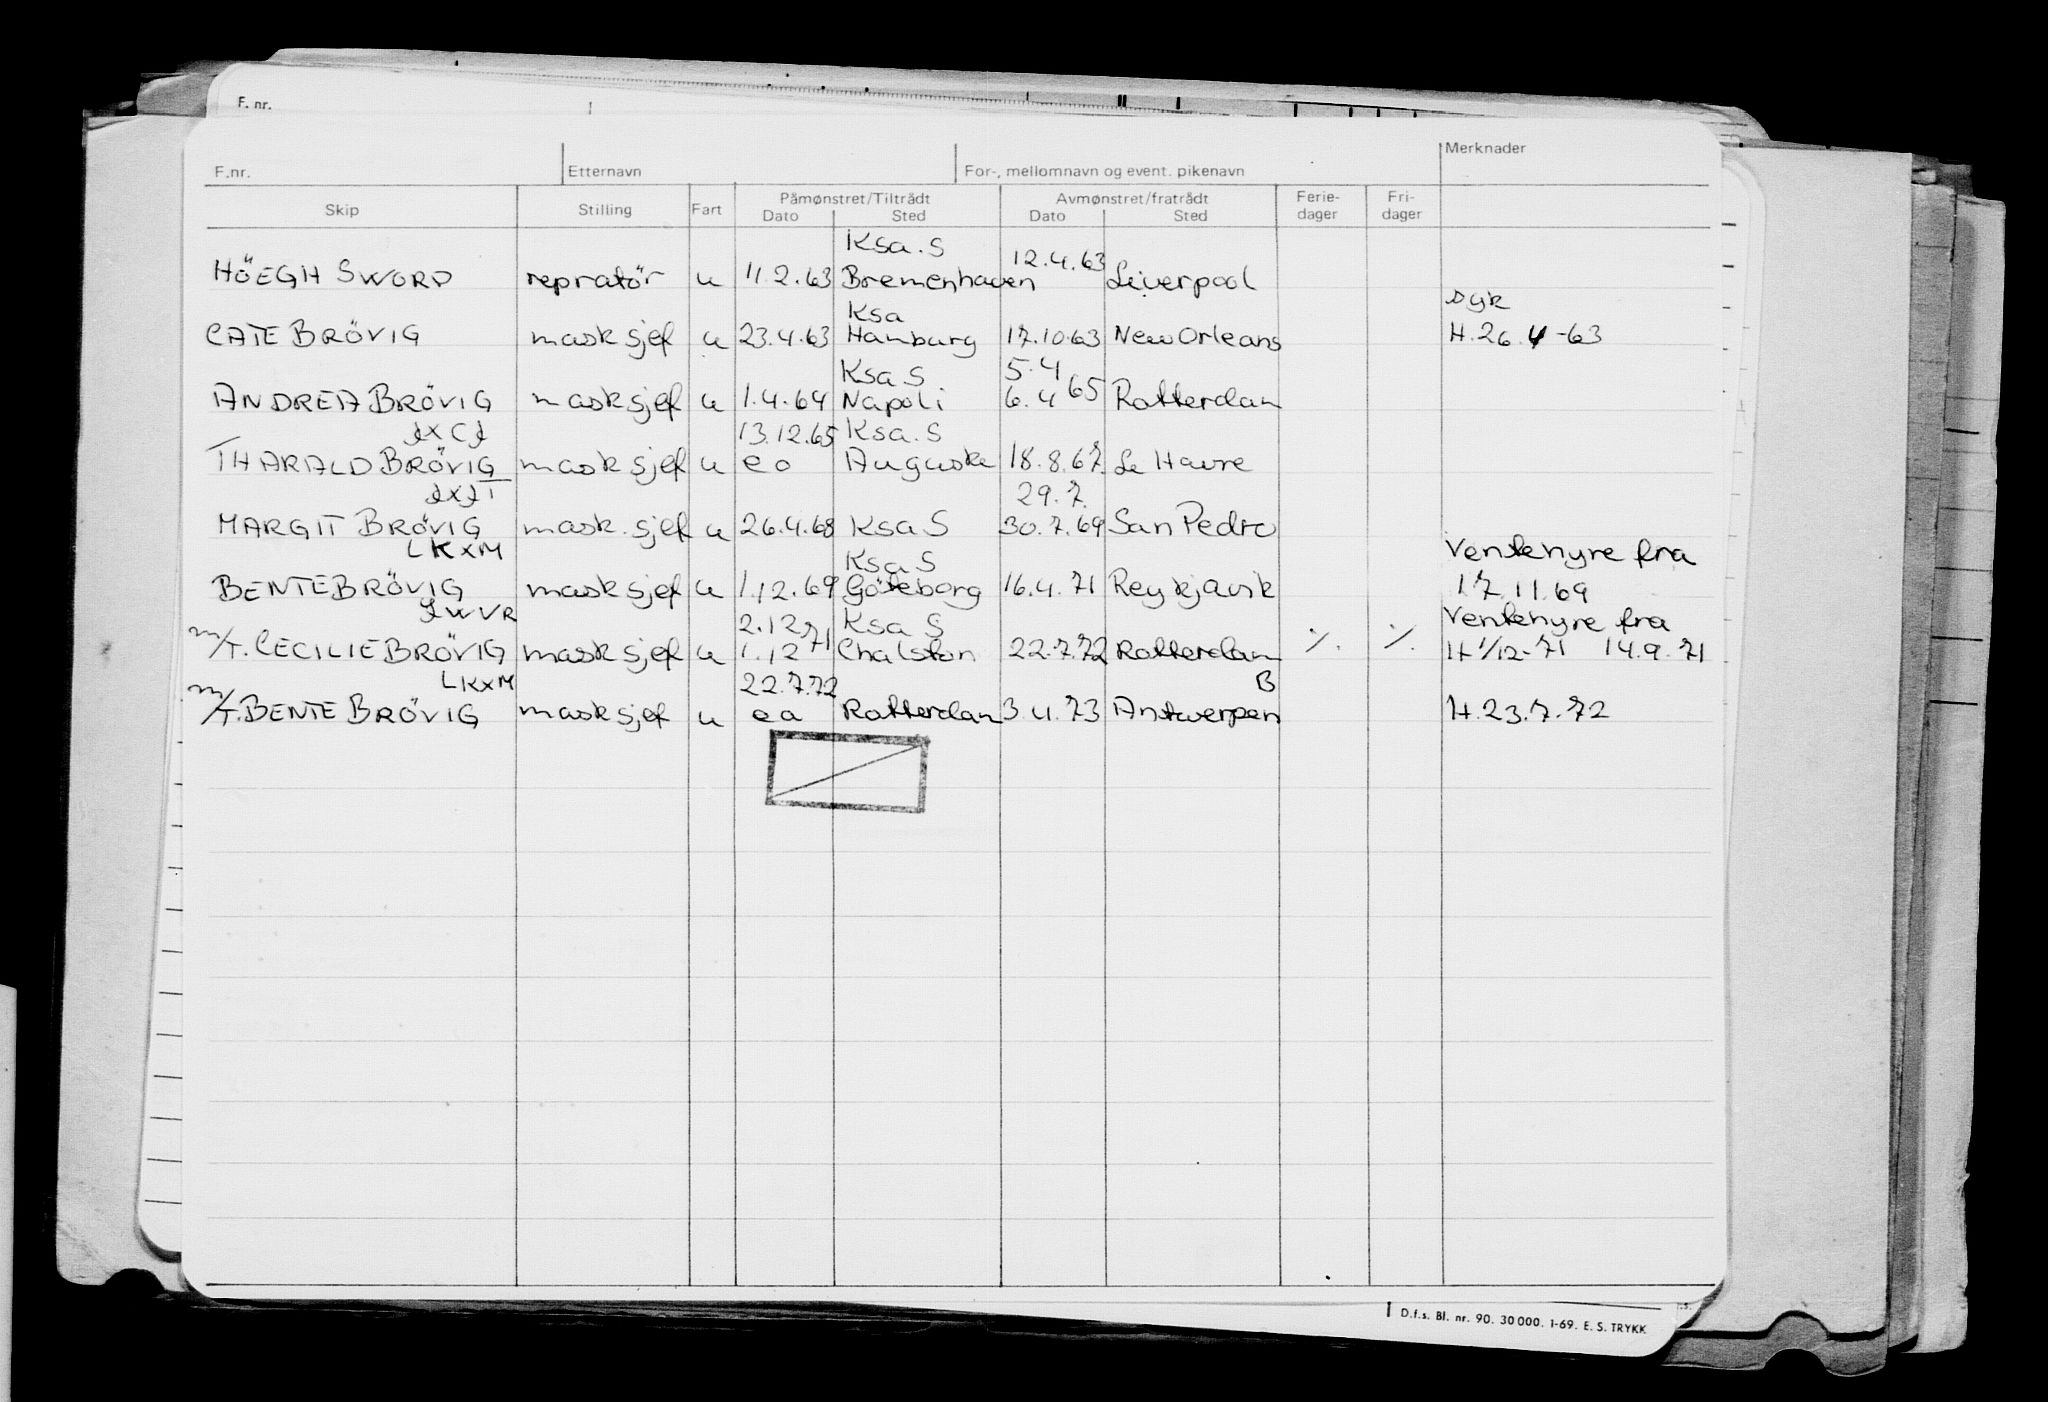 F. nr.
F.nr. Etternavn For-, mellomnavn og event. pikenavn Merknader
Skip Stilling Fart Påmønstret/Tiltrådt Dato Sted Avmønstret/fratrådt Dato Sted Ferie-dager Fri-dager
Ksa. S
HÖEGH SWORD repratör u 11.2.63 Bremenhaven 12.4.63 Liverpool
Ksa Dgk
CATE BRÖVIG mask sjef u 23.4.63 Hamburg 17.10.63 New Orleans H. 26.4-63
Ksa S 5.4
ANDREA BRÖVIG mask sjef u 1.4.64 Napoli 6.4 65 Rotterdam
13.12.65 Ksa. S
THARALD BRÖVIG mask sjef u e o Auguska 18.8.67 Le Havre
29.7.
MARGIT BRÖVIG mask. sjef u 26.4.68 Ksa S 30.7.69 San Pedro
LKXM Ksa S Ventehyre fra
BENTE BRÖVIG mask sjef u 1.12.69 Göteborg 16.4.71 Reykjavik 17.11.69
2.12 71 Ksa S Ventehyre fra
M/T. CECILIE BRÖVIG mask sjef u 1.12 Chalston 22.7.72 Rotterdam ./. ./. H 1/12-71 14.9.71
LKXM 22.7.72 B
M/T. BENTE BRÖVIG mask sjef u e o Rotterdam 3.4.73 Antwerpen H. 23.7.72
D.f.s. Bl. nr. 90. 30 000. 1-69. E. S. TRYKK